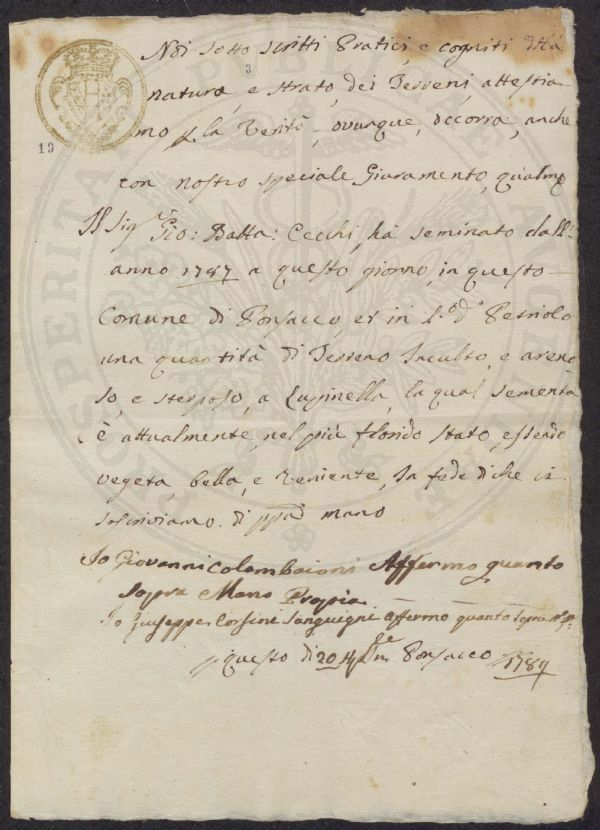 Noi sotto scritti Pratici, e cogniti della
3
natura, e strato, dei Terreni, attestia
mo p. la Verità, ovunque, occorra, anche
19
con nostro speciale Giuramento, qualme
Il Sig.r Gio: Batta: Cecchi, ha seminato dall'
anno 1787 a questo giorno, in questo
Comune di Ponsacco, et in L.o d.o Petriolo
una quantità di Terreno Inculto, e areno
so, e sterposo, a Lupinella, la qual sementa
è attualmente, nel più florido stato, essendo
vegeta, bella, e Veniente, In fede di che ci
soscriviamo di ppa mano
Io Giovanni Colombaioni Affermo quanto
sopra e Mano Propia
Io Giuseppe Corsini Sanguigni affermo quanto sopra M. P.
questo dì 20 Ponsacco 1789
PROSPERITATI PUBLICAE